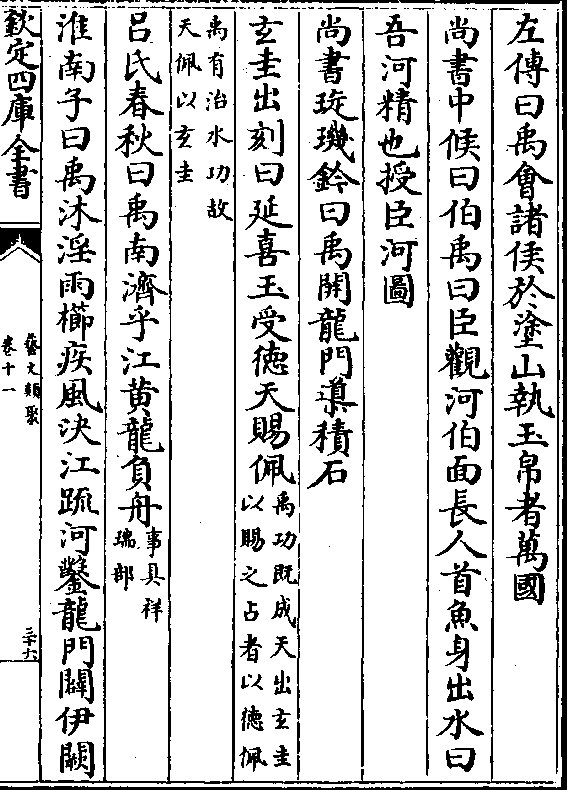 左傳曰禹會諸侯於塗山執玉帛者萬國
尚書中候曰伯禹曰臣觀河伯面長人首魚身出水曰
吾河精也授臣河圖
尚書琁璣鈐曰禹開龍門導積石
玄圭出刻曰延喜玉受徳天賜佩禹功既成天出玄圭
以賜之占者以德佩
禹有治水功故
天佩以玄圭
吕氏春秋曰禹南濟乎江黄龍負舟事具祥
瑞部
淮南子曰禹沐淫雨櫛疾風決江疏河鑿龍門闢伊闕
欽定四庫全書
藝文類聚
卷十一
三十六